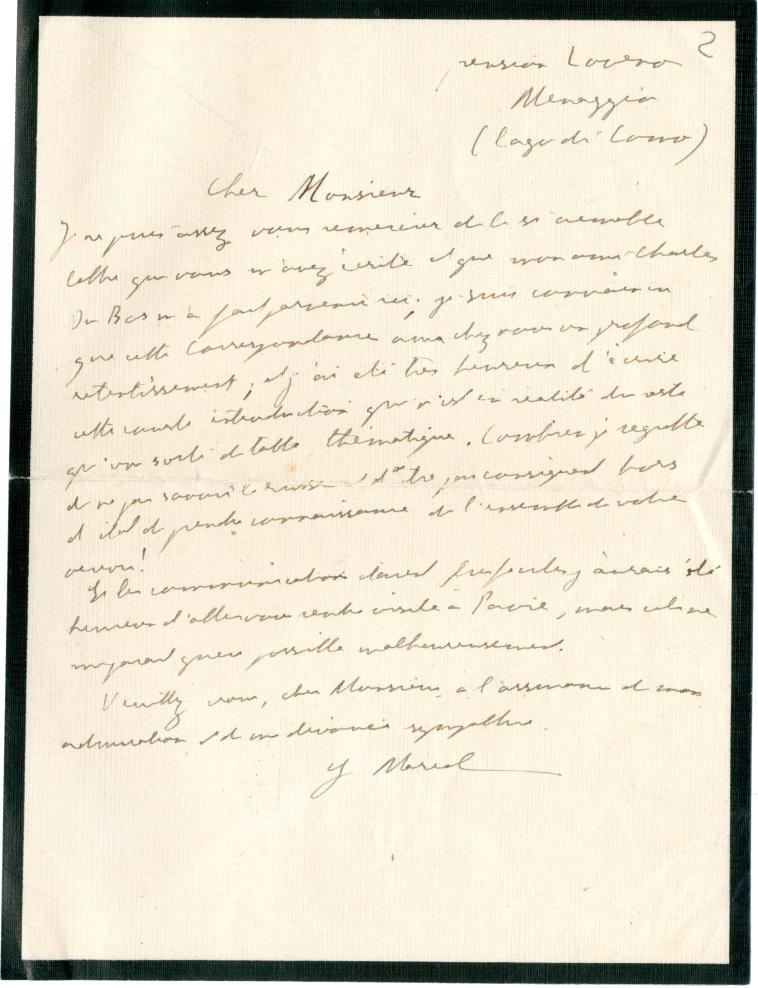 2
pension Loveno
Menaggio
(Lago di Como)
Cher Monsieur
Je ne puis assez vous remercier de la si aimable
lettre que vous m'avez écrite et que mon ami Charles
Du Bos m'a fait parvenir ici. Je suis convaincu
que cette Correspondance aura chez nous un profond
retentissement, et j'ai été très heureux d'écrire
cette courte introduction qui n'est en réalité du reste
qu'une sorte de table thématique. Combien je regrette
de ne pas savoir le russe et d'être par conséquent hors
d'état de prendre connaissance de l'ensemble de votre
oeuvre!
Si les communications étaient plus faciles j'aurais été
heureux d'aller vous rendre visite à Pavie, mais cela ne
me paraît guère possible malheureusement.
Veuillez croire, cher Monsieur, à l'assurance de mon
admiration et de ma sympathie.
G Marcel